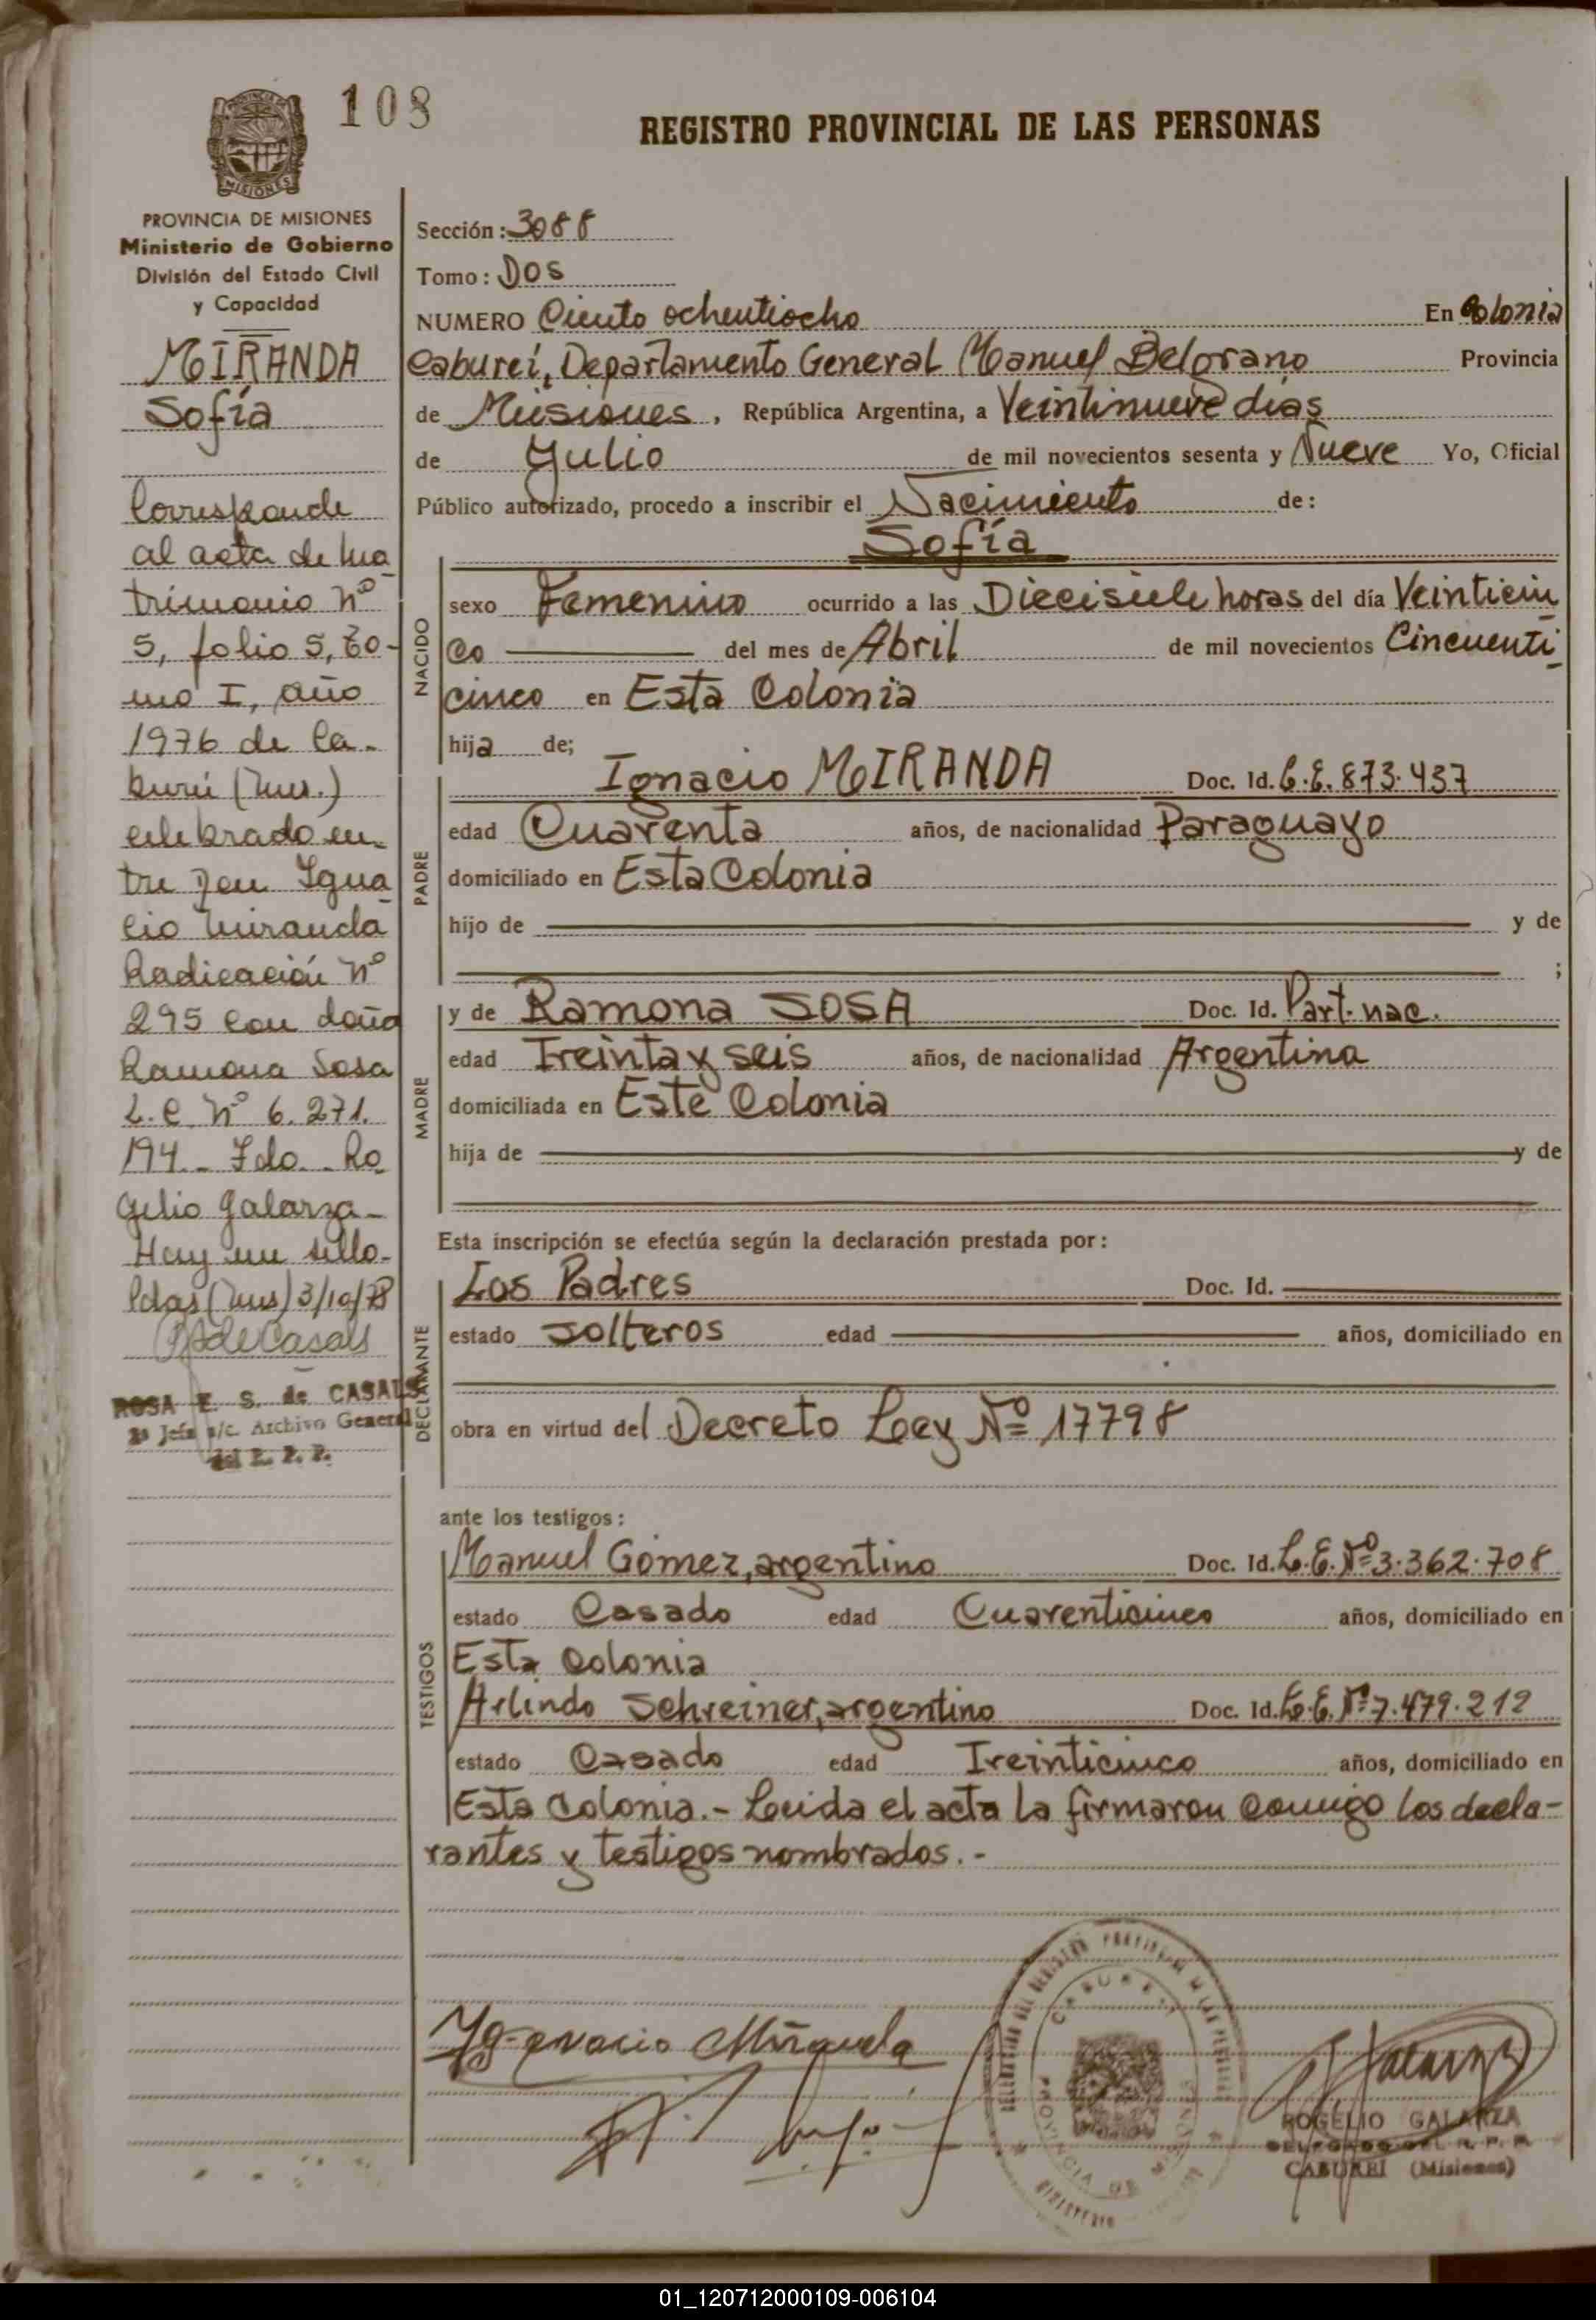 108
REGISTRO PROVINCIAL DE LAS PERSONAS
PROVINCIA DE MISIONES
Ministerio de Gobierno
División del Estado Civil
y Capacidad
MIRANDA
Sofía
Corresponde
al acta de ma
trimonio nº
5, folio 5, to-
mo I, año
1976 de Ca-
bureí (Mnes.)
celebrado en-
tre Don Igna
cio Miranda
Radicación nº
295 con doña
Ramona Sosa
L.C. nº 6.271.
194.- Fdo. Ro
gelio Galarza-
Hay un sello-
Pdas (Mnes) 3/10/78
ROSA E. S. de CASALS
2ª Jefa a/c. Archivo General
del R. P. P.
Sección: 3088
Tomo: Dos
NUMERO Ciento ochentiocho En Colonia
Cabureí, Departamento General Manuel Belgrano Provincia
de Misiones, República Argentina, a Veintinueve días
de Julio de mil novecientos sesenta y Nueve Yo, Oficial
Público autorizado, procedo a inscribir el Nacimiento de:
Sofía
NACIDO
sexo Femenino ocurrido a las Diecisiete horas del día Veinticin
co del mes de Abril de mil novecientos Cincuenti
cinco en Esta Colonia
hija de;
PADRE
Ignacio MIRANDA Doc. Id. C.E. 873.437
edad Cuarenta años, de nacionalidad Paraguayo
domiciliado en Esta Colonia
hijo de y de
;
MADRE
y de Ramona SOSA Doc. Id. Part. nac.
edad Treinta y seis años, de nacionalidad Argentina
domiciliada en Este Colonia
hija de y de
Esta inscripción se efectúa según la declaración prestada por:
DECLARANTE
Los Padres Doc. Id.
estado Solteros edad años, domiciliado en
obra en virtud del Decreto Ley Nº 17798
ante los testigos:
TESTIGOS
Manuel Gómez, argentino Doc. Id. L.E. Nº 3.362.708
estado Casado edad Cuarenticinco años, domiciliado en
Esta Colonia
Arlindo Schreiner, argentino Doc. Id. L.E. Nº 7.479.212
estado Casado edad Treinticinco años, domiciliado en
Esta Colonia.- Leida el acta la firmaron conmigo los decla-
rantes y testigos nombrados.-
CABUREI
PROVINCIA DE MISIONES
ROGELIO GALARZA
DELEGADO DEL R. P. P.
CABUREI (Misiones)
01_120712000109-006104